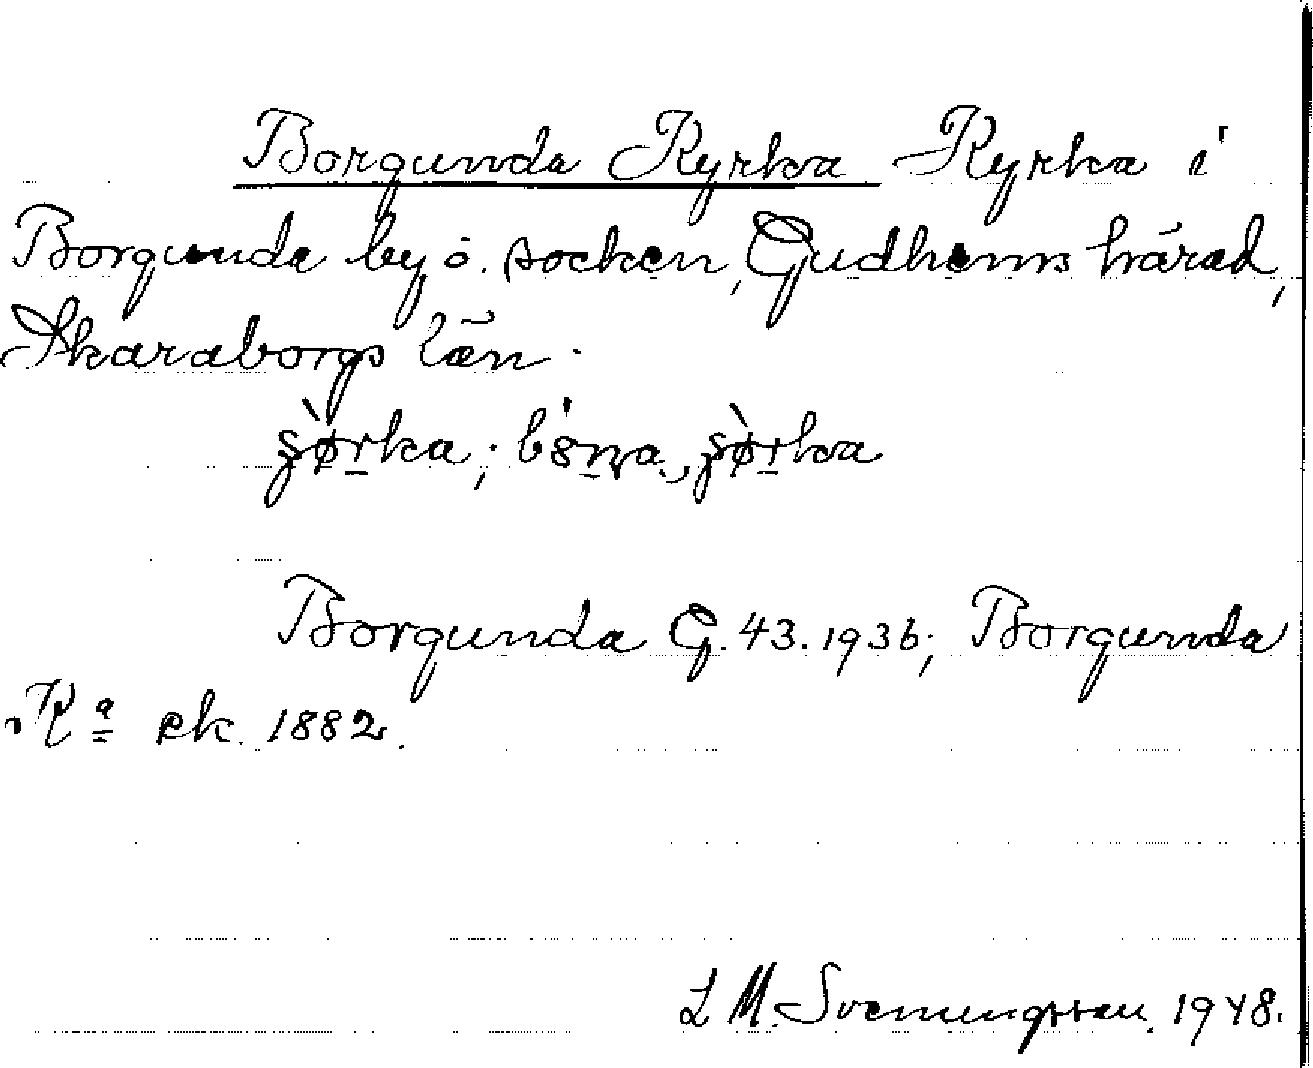 Borgunda Kyrka Kyrka i
Borgunda by o. socken, Gudhems härad,
Skaraborgs län.
Borgunda G. 43. 1936; Borgunda
Ka ek. 1882.
L M. Svenungsson. 1948.